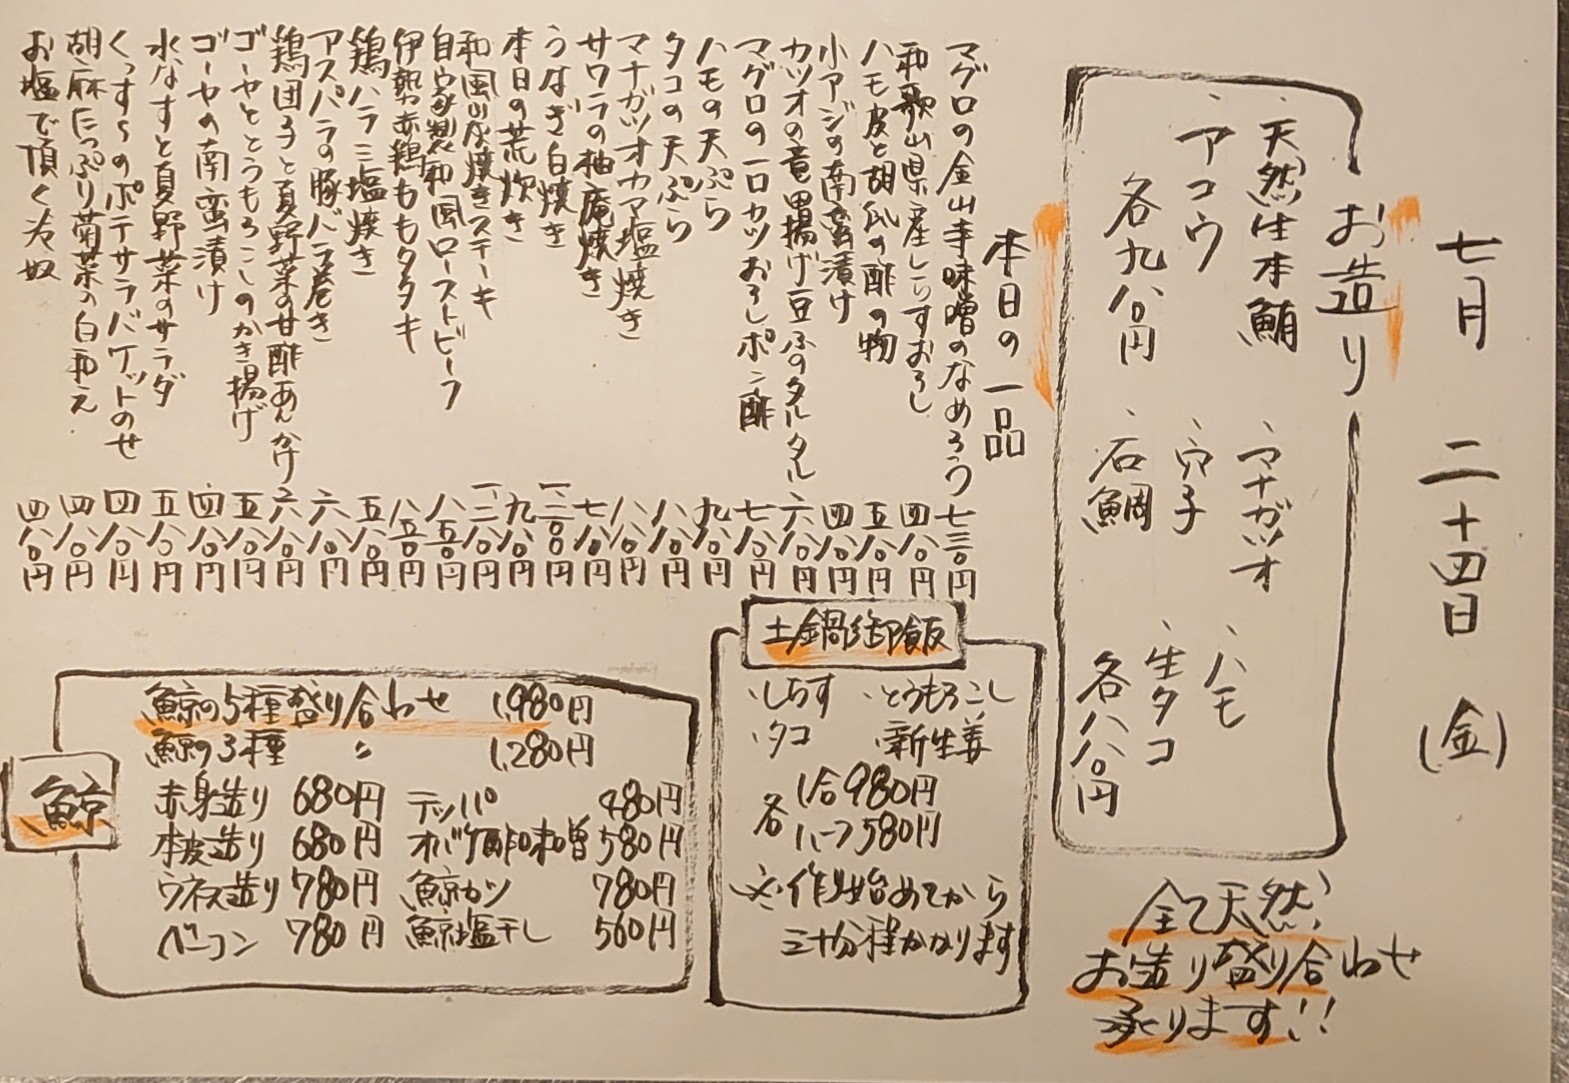 七月二十四日(金)
お造り
・天然生本鮪 ・マナガツオ ・ハモ
・アコウ ・穴子 ・生タコ
各九八〇円 ・石鯛 各八八〇円
全て天然、
お造り盛り合わせ
承ります!!
本日の一品
マグロの金山寺味噌のなめろう 七三〇円
和歌山県産しらすおろし 四八〇円
ハモ皮と胡瓜の酢の物 五八〇円
小アジの南蛮漬け 四八〇円
カツオの竜田揚げ豆ふのタルタル 六八〇円
マグロの一口カツおろしポン酢 七八〇円
ハモの天ぷら 九八〇円
タコの天ぷら 八八〇円
マナガツオカマ塩焼き 八八〇円
サワラの柚庵焼き 七八〇円
うなぎ白焼き 一、二〇〇円
本日の荒炊き 九八〇円
和風山芋焼きステーキ 一、二八〇円
自家製和風ローストビーフ 八五〇円
伊勢赤鶏ももタタキ 八五〇円
鶏ハラミ塩焼き 五八〇円
アスパラの豚バラ巻き 六八〇円
鶏団子と夏野菜の甘酢あんかけ 六八〇円
ゴーヤととうもろこしのかき揚げ 五八〇円
ゴーヤの南蛮漬け 四八〇円
水なすと夏野菜のサラダ 五八〇円
くっすぅのポテサラバケットのせ 四八〇円
胡麻たっぷり菊菜の白和え 四八〇円
お塩で頂く冷奴 四八〇円
土鍋御飯
・しらす ・とうもろこし
・タコ ・新生姜
各 1合980円
ハーフ580円
※作り始めてから
三十分程かかります
鯨
鯨の5種盛り合わせ 1,980円
鯨の3種 〃 1,280円
赤身造り 680円 テッパ 480円
本皮造り 680円 オバケ酢味噌 580円
ウネス造り 780円 鯨カツ 780円
ベーコン 780円 鯨塩干し 560円